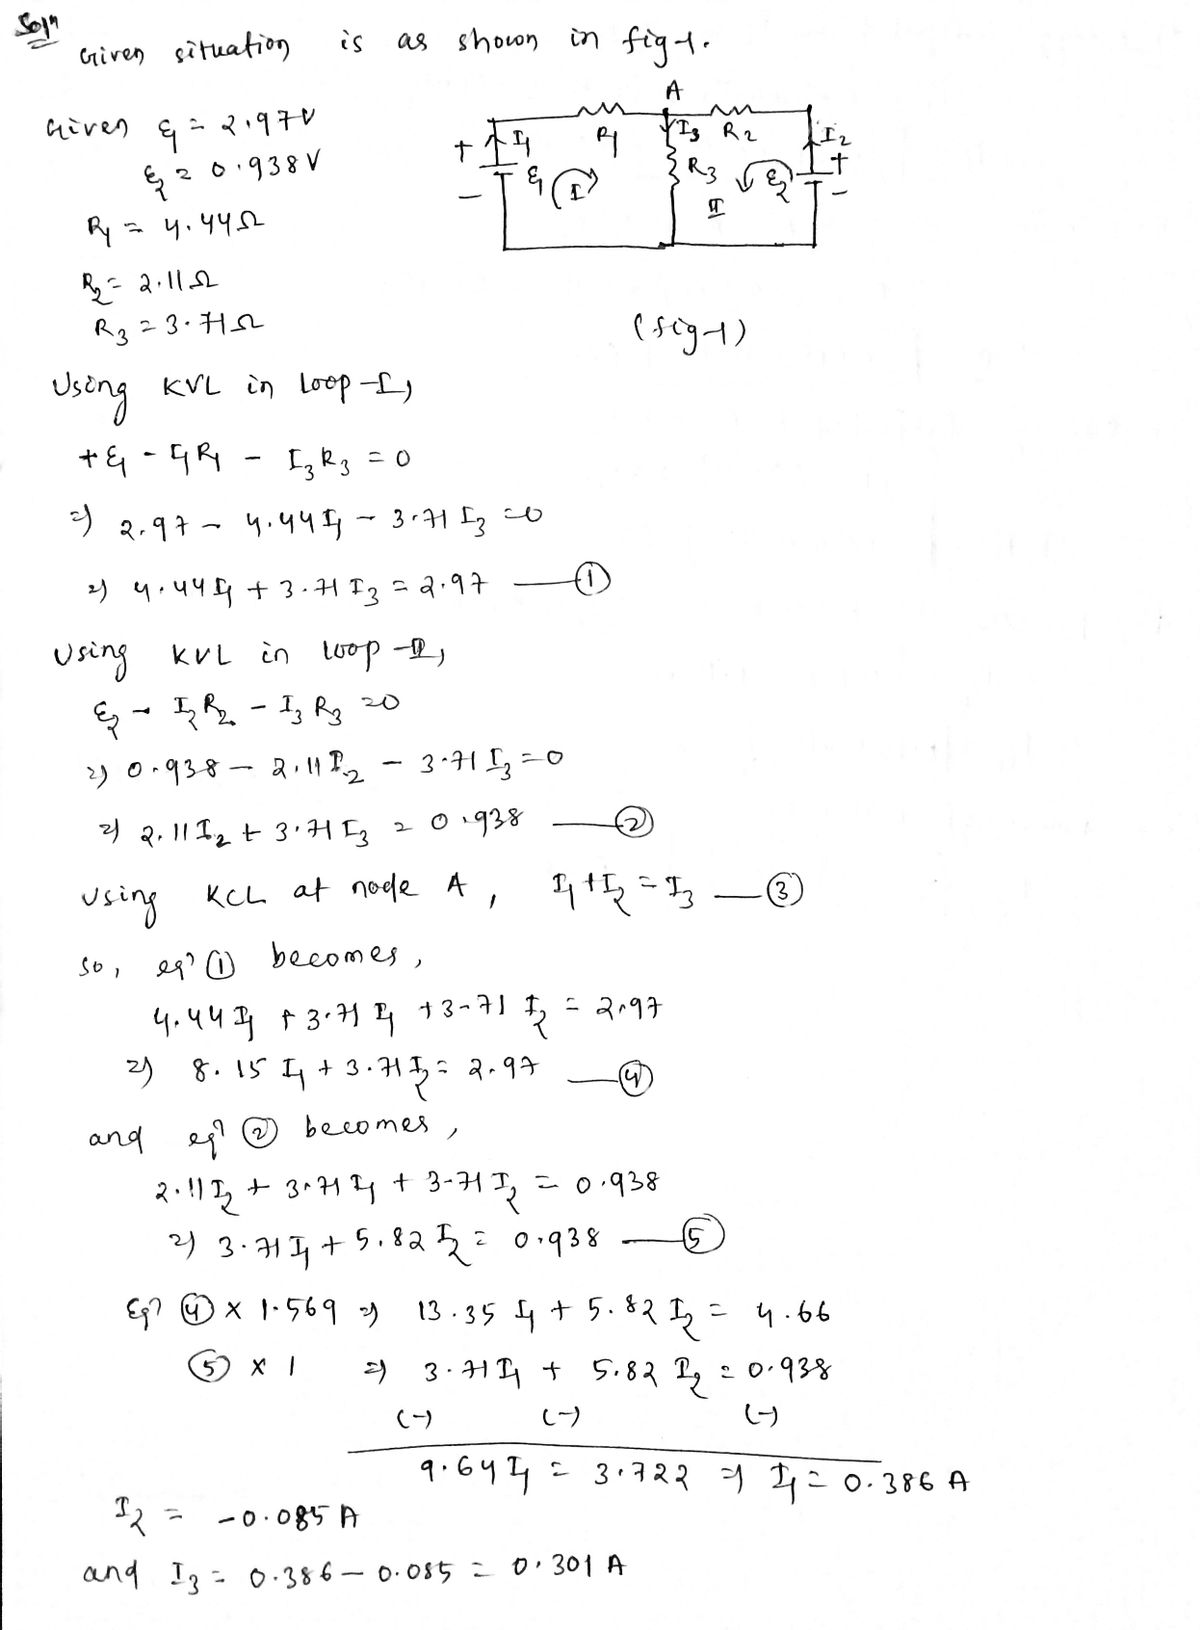 Soln
Given situation is as shown in fig-1.
Given ε1 = 2.97V
ε2 = 0.938V
R1 = 4.44Ω
R2 = 2.11Ω
R3 = 3.71Ω
A
+ I1 R1 I3 R2 I2 +
- ε1 I R3 ε2 -
II
(fig-1)
Using KVL in loop-I,
+ε1 - I1R1 - I3R3 = 0
⇒ 2.97 - 4.44I1 - 3.71 I3 = 0
⇒ 4.44I1 + 3.71 I3 = 2.97 — ①
Using KVL in loop-II,
ε2 - I2R2 - I3R3 = 0
⇒ 0.938 - 2.11 I2 - 3.71 I3 = 0
⇒ 2.11I2 + 3.71 I3 = 0.938 — ②
Using KCL at node A, I1+I2 = I3 — ③
So, eqn ① becomes,
4.44 I1 + 3.71 I1 + 3.71 I2 = 2.97
⇒ 8.15 I1 + 3.71 I2 = 2.97 — ④
and eqn ② becomes,
2.11 I2 + 3.71 I1 + 3.71 I2 = 0.938
⇒ 3.71 I1 + 5.82 I2 = 0.938 — ⑤
Eqn ④ x 1.569 ⇒ 13.35 I1 + 5.82 I2 = 4.66
⑤ x 1 ⇒ 3.71I1 + 5.82 I2 = 0.938
(-) (-) (-)
9.64 I1 = 3.722 ⇒ I1 = 0.386 A
I2 = -0.085 A
and I3 = 0.386 - 0.085 = 0.301 A